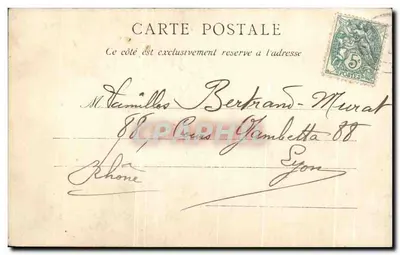 CARTE POSTALE
Ce côté est exclusivement reserve a l'adresse
5
M. familles Bertrand-Murat
88, Cours Gambetta 88
à
Lyon
Rhône